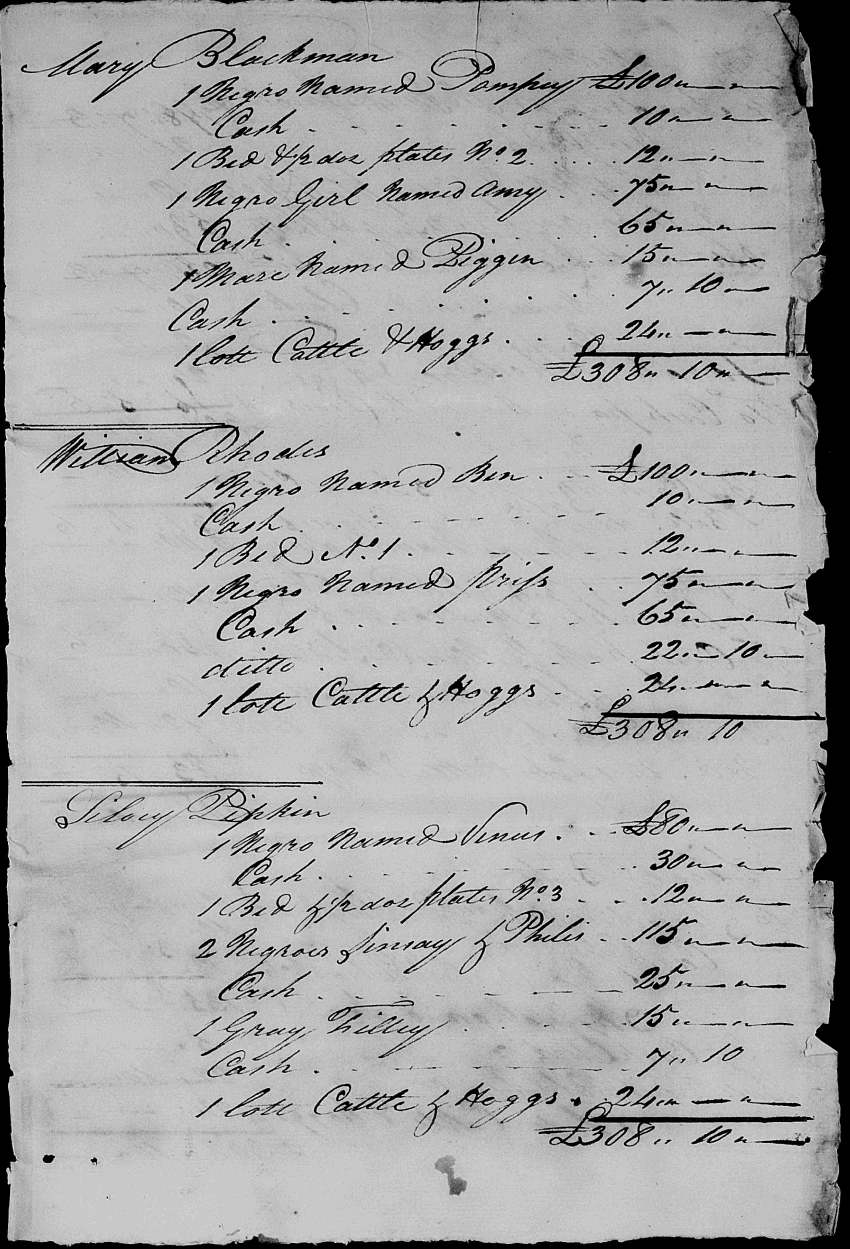 Mary Blackman
1 Negro Named Pompey £100 „ — „ —
Cash . . . . . . 10 „ — „ —
1 Bed & ½ doz plates No. 2 . . . 12 „ — „ —
1 Negro Girl Named Amy . . 75 „ — „ —
Cash . . . . . 65 „ — „ —
1 Mare Named Piggin . . . 15 „ — „ —
Cash . . . . . . 7 „ 10 „ —
1 lott Cattle & Hoggs . . . . 24 „ — „ —
£308 „ 10 „ —
William Rhodes
1 Negro Named Ben . . . £100 „ — „ —
Cash . . . . . . 10 „ — „ —
1 Bed No. 1 . . . . . . 12 „ — „ —
1 Negro Named Priss . . 75 „ — „ —
Cash . . . . . . 65 „ — „ —
ditto . . . . . . 22 „ 10 „ —
1 lott Cattle & Hoggs . . . 24 „ — „ —
£308 „ 10
Silvey Pipkin
1 Negro Named Venus . . . £80 „ — „ —
Cash . . . . . . 30 „ — „ —
1 Bed & ½ doz plates No. 3 . . . 12 „ — „ —
2 Negroes & Philis . . 115 „ — „ —
Cash . . . . . . 25 „ — „ —
1 Gray Filley . . . . . 15 „ — „ —
Cash . . . . . . 7 „ 10
1 lott Cattle & Hoggs . 24 „ — „ —
£308 „ 10 „ —